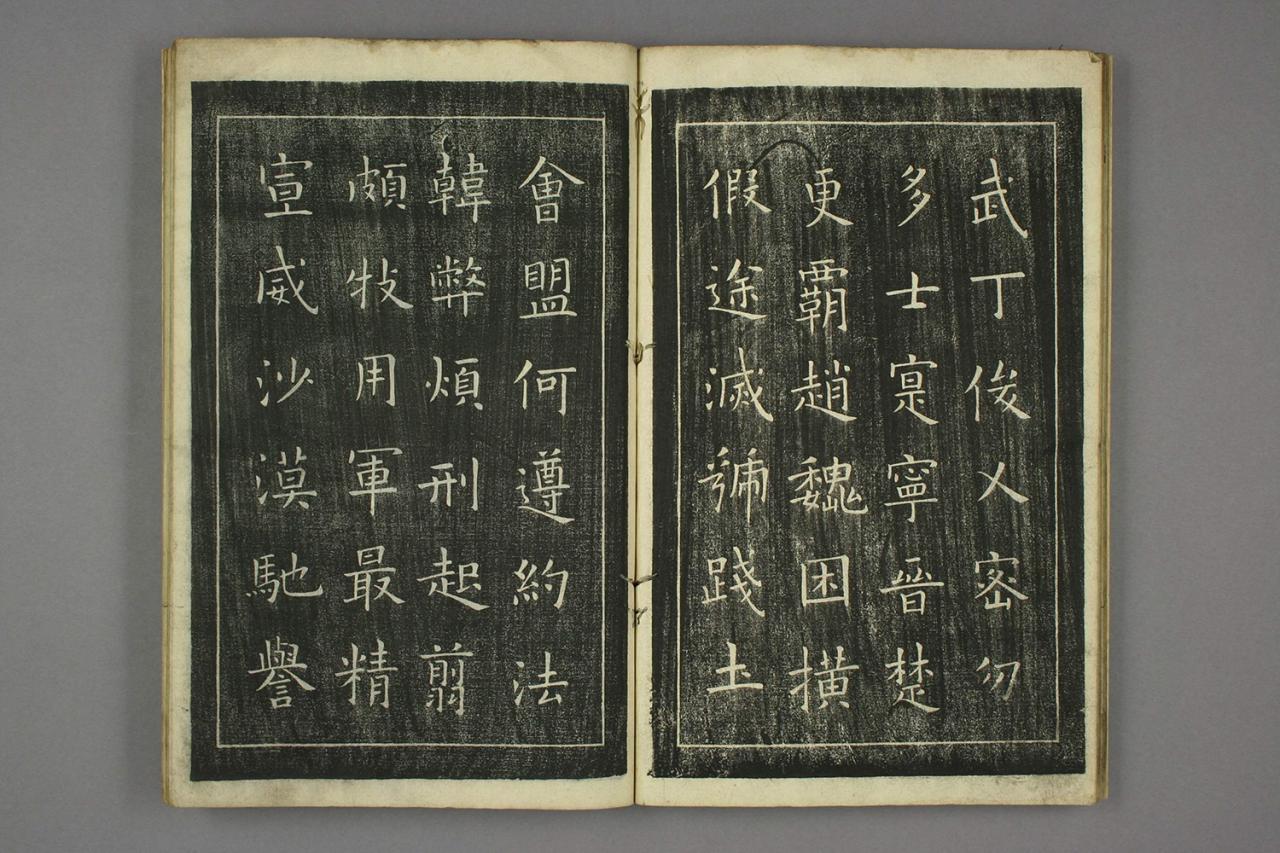 武丁俊乂密勿
多士寔寧晉楚
更覇趙魏困橫
假途滅虢踐土
會盟何遵約法
韓弊煩刑起翦
頗牧用軍最精
宣威沙漠馳譽